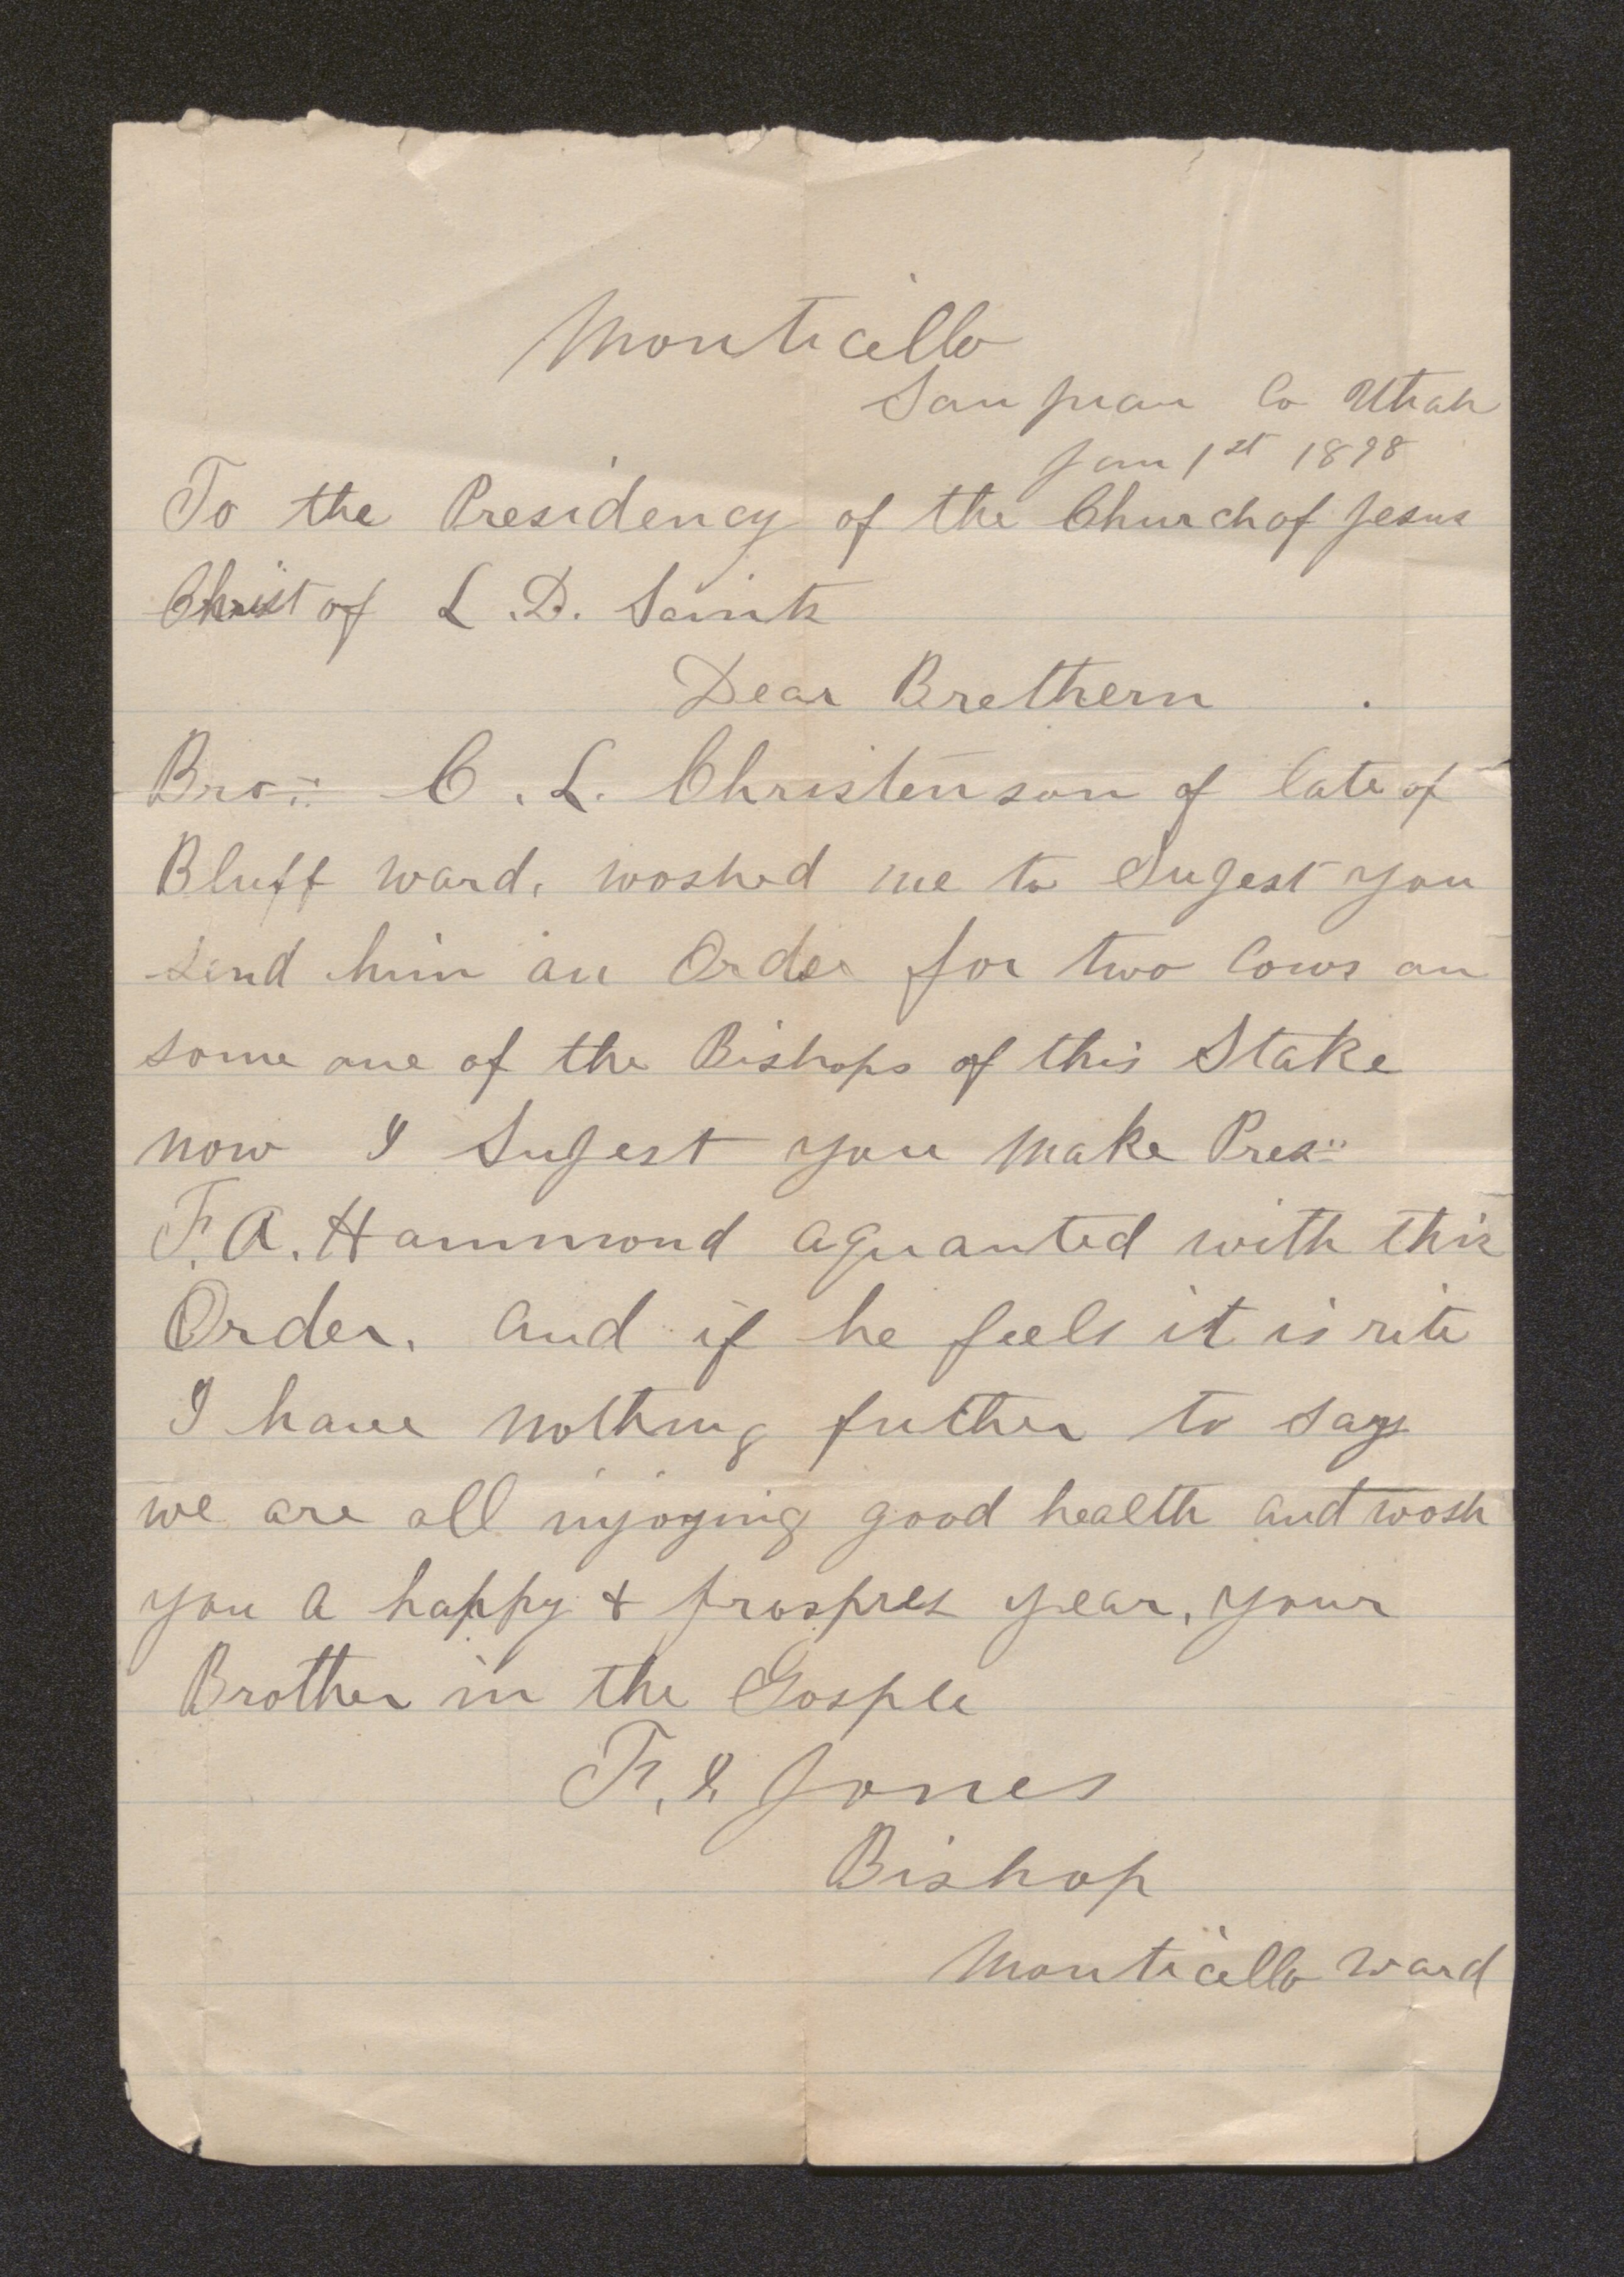 Monticello
San Juan Co Utah
Jan 1st 1898
To the Presidency of the Church of Jesus
Christ of L.D. Saints
Dear Brethern .
Bro:: C.L. Christenson of late of
Bluff ward, woshed me to Sugest you
send him an Order for two Cows on
some one of the Bishops of this Stake
now I Sugest you make Pres::
F.A. Hammond aquanted with this
Order. and if he feels it is rite
I have nothing futher to say
we are all injoying good health and wosh
you a happy & prospres year, your
Brother in the Gosple
F. I. Jones
Bishop
Monticello ward